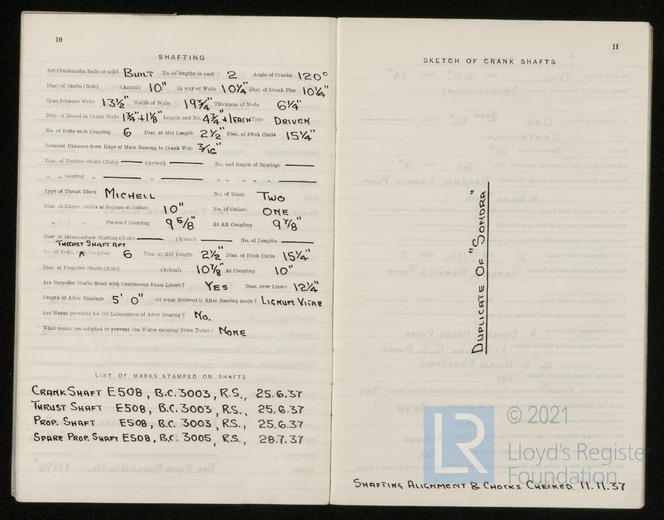 10
SHAFTING
Are Crankshafts built or solid BUILT No. of lengths in each 2 Angle of Cranks 120°
Diar. of Shafts (Rule) (Actual) 10" In way of Webs 10¼" Diar. of Crank Pins 10¼"
Span between Webs 13½" Width of Webs 19¾" Thickness of Webs 6¼"
Diar. of Dowel in Crank Webs Length and No. Type DRIVEN
No. of Bolts each Coupling 6 Diar. at Mid Length 2½" Diar. of Pitch Circle 15¼"
Greatest Distance from Edge of Main Bearing to Crank Web 3/16"
Diar. of Tunnel Shafts (Rule) — (Actual) — No. and length of Bearings —
Type of Thrust Block MICHELL No. of Rings TWO
Diar. of Thrust Shafts at Bottom of Collars 10" No. of Collars ONE
" " Forward Coupling 9⅝" At Aft Coupling 9⅞"
Diar. of Intermediate Shafting (Rule) — (Actual) — No. of Lengths —
THRUST SHAFT AFT
No. of Bolts Coupling 6 Diar. at Mid Length 2½" Diar. of Pitch Circle 15¼"
Diar. of Propeller Shafts (Rule) (Actual) 10⅞" At Coupling 10"
Are Propeller Shafts fitted with Continuous Brass Liners? YES Diar. over Liners 12¼"
Length of After Bearings 5' 0" Of what Material is After Bearing made? LIGNUM VITAE
Are Means provided for Oil Lubrication of After Bearing? NO.
What means are adopted to prevent Sea Water entering Stern Tubes? NONE
LIST OF MARKS STAMPED ON SHAFTS
CRANKSHAFT E508, B.C. 3003, R.S., 25.6.37
THRUST SHAFT E508, B.C. 3003, R.S., 25.6.37
PROP. SHAFT E508, B.C. 3003, R.S., 25.6.37
SPARE PROP. SHAFT E508, B.C. 3005, R.S., 28.7.37
11
SKETCH OF CRANK SHAFTS
DUPLICATE OF "SONDRA"
SHAFTING ALIGNMENT & CHOCKS CHECKED 11.11.37
LR
© 2021
Lloyd's Register
Foundation